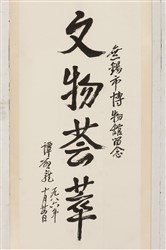 無錫市博物館留念
文物荟萃
一九八六年
十月廿日